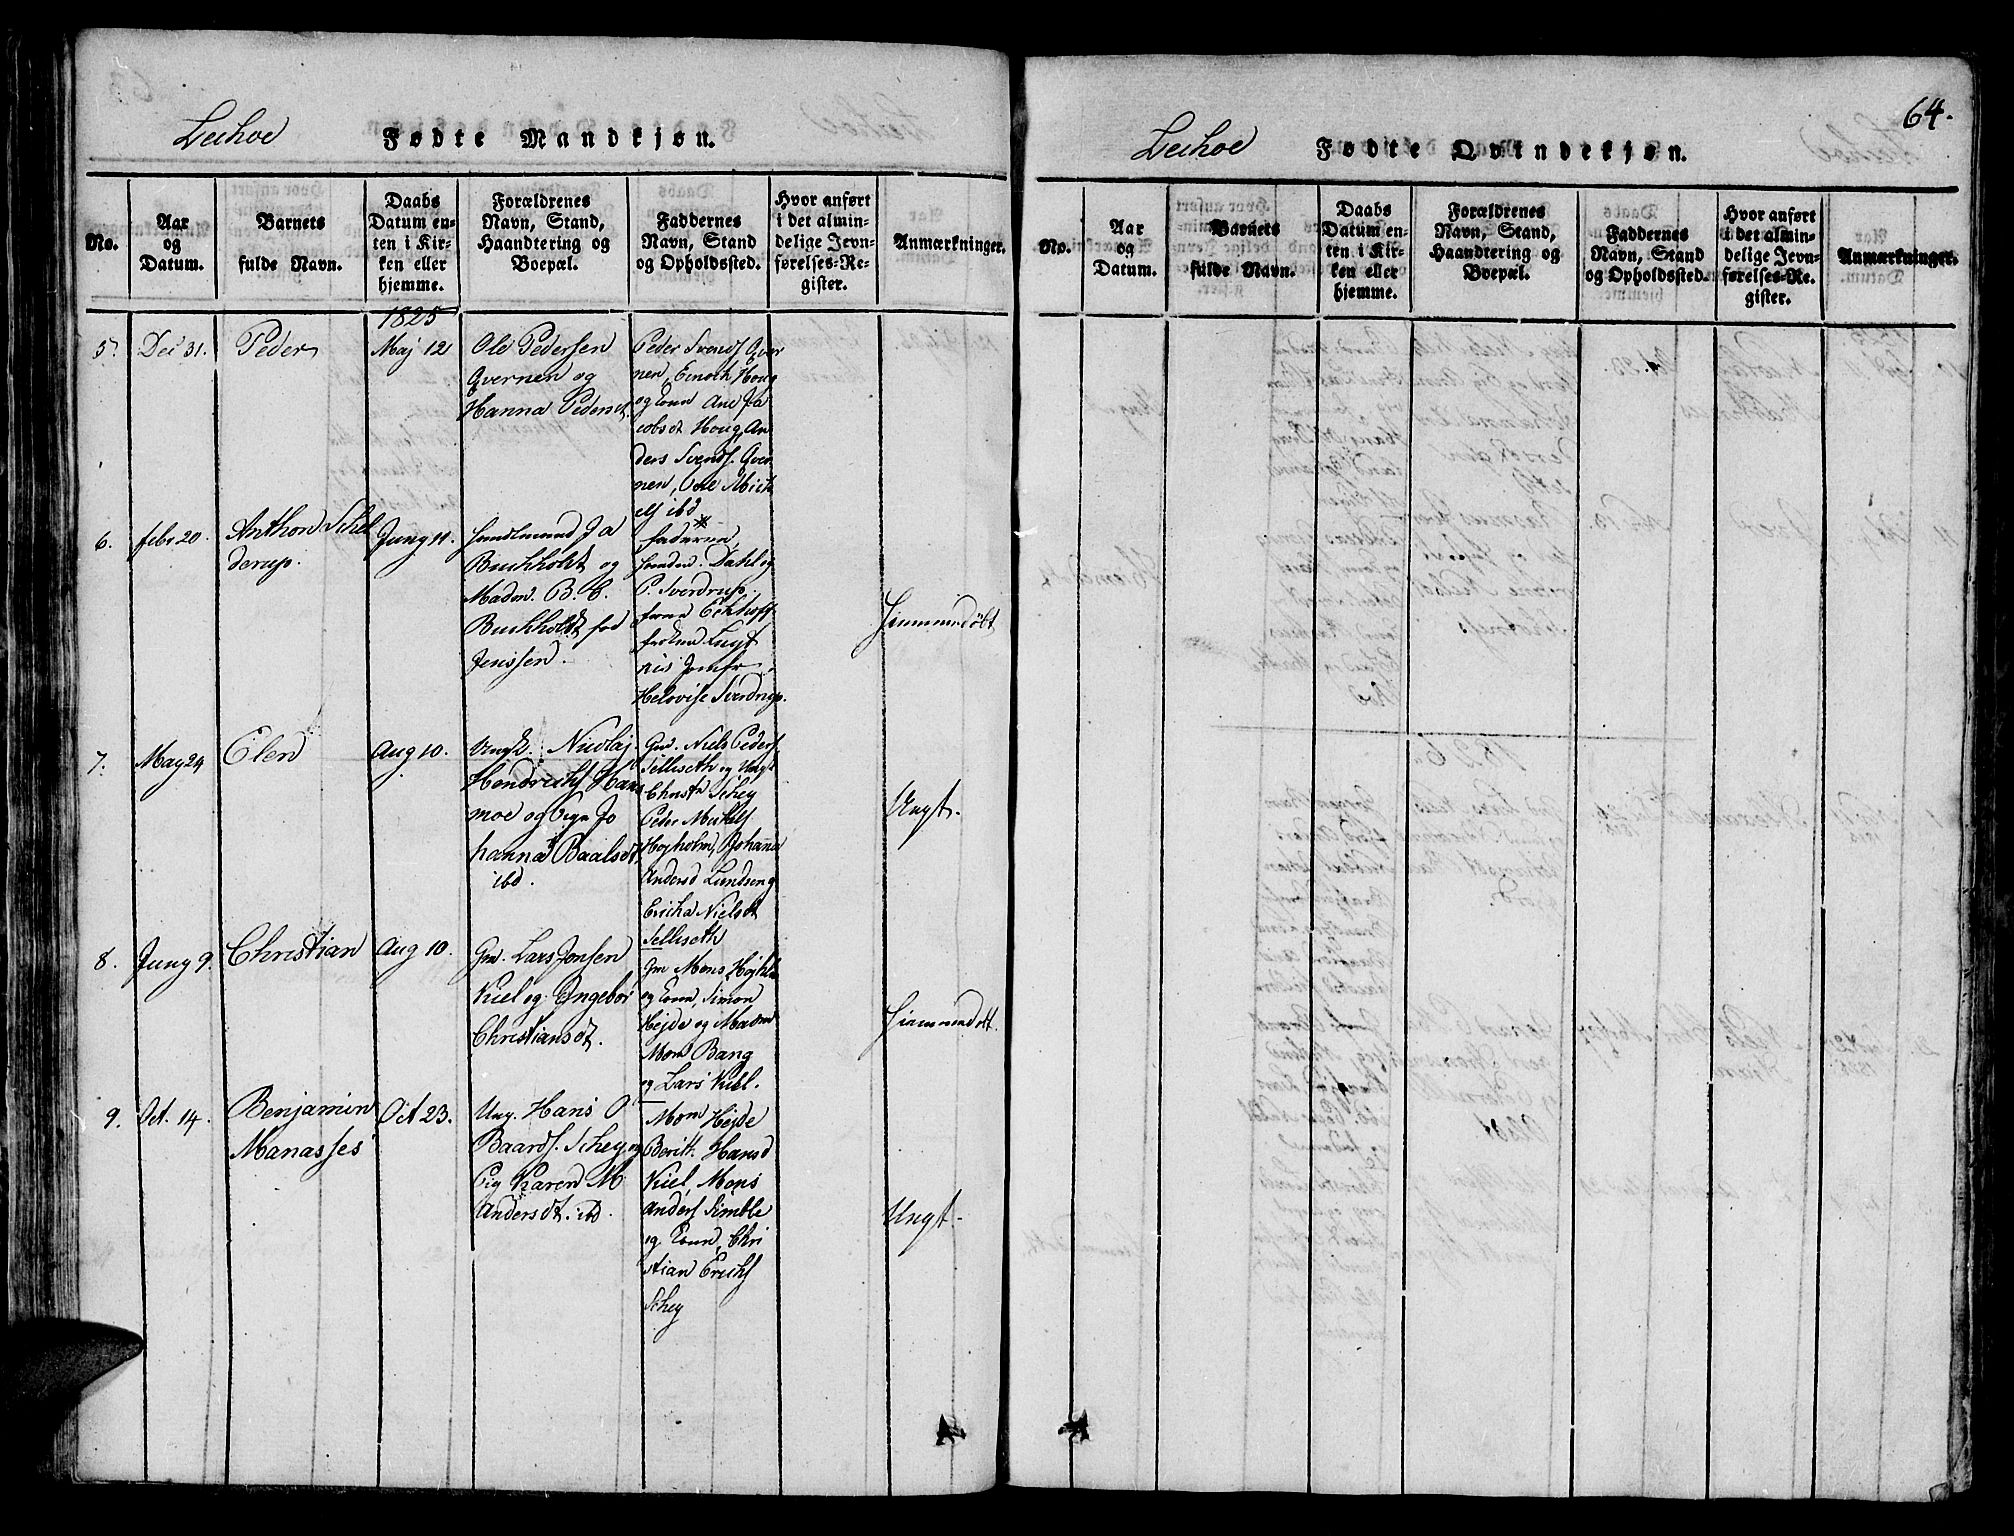 Leehoe
Fødte Mandkjøn.
No.
Aar
og
Datum.
Barnets
fulde Navn.
Daabs
Datum en-
ten i Kir-
ken eller
hjemme.
Forældrenes
Navn, Stand,
Haandtering og
Boepæl.
Faddernes
Navn, Stand
og Opholdssted.
Hvor anført
i det almin-
delige Jevn-
førelses-Re-
gister.
Anmærkninger.
1825
5. Dec 31.
Peder
Maj 12
Ole Pedersen
Qvernen og
Hanna Pedersdt.
Peder Svends Qver
nen, Enoch Houg
og Kone Ane Ja
cobsdt Houg, An
ders Svends. Qver
nen, Ole Mich
els ibd
6. febr 20.
Anthon Schel
derup.
Juny 11.
Buchholdt og
Madm. B. C.
Buchholdt fød
Jenssen.
Dahl og
P. Sverdrup.
Eckhoff
Jomfr
Helovise Sverdrup.
Hjemmedøbt
7. May 24
Elen
Aug 10.
Ungk. Nicolaj
Hendrichs Ham
moe og Pige Jo
hanna Baalsdt
ibd.
Gm. Niels Peders
Selliseth og Ungk
Christn Schey
Peder Michels
Hojholm, Johanna
Andersd Lundseng
Ericha Nielsdt
Selliseth
Uægt.
8. Juny 9.
Christian
Aug 10.
Gm. Lars Jonsen
Kiel og Ingebor
Christiansdt.
Gm Mons Hojhlm
og Kone, Simon
Hejde og Madm
Mons Bang
og Lars Kiel.
Hiemmedøbt.
9. Oct. 14.
Benjamin
Manasses
Oct 23.
Ung. Hans O
Baards. Schey og
Pig Karen M
Andersdt. ibd.
Mons Hejde
Beritt Hansd
Kiel, Mons
Anders Simble
og Kone, Chri
stian Erichs
Schey
Uægt.
64.
Leehoe
Fødte Qvindekjøn.
No.
Aar
og
Datum.
Barnets
fulde Navn.
Daabs
Datum en-
ten i Kir-
ken eller
hjemme.
Forældrenes
Navn, Stand,
Haandtering og
Boepæl.
Faddernes
Navn, Stand
og Opholdssted.
Hvor anført
i det almin-
delige Jevn-
førelses-Re-
gister.
Anmærkninger.